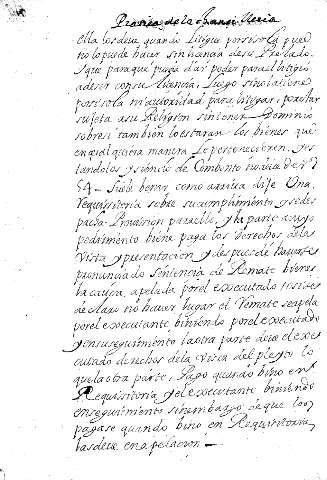 Practica de la Chancilleria
ella los deve quando litigue por si sola pues
no lo puede hacer sin licencia de su Prelado.
y que para que pueda dar poder para el litigio
a de ser con su licencia, luego si no la tiene
por si sola ni autoridad para litigar, i por estar
sujeta a su Religion sin tener Dominio
sobre si tambien lo estaran los bienes que
en qualquiera manera le pertenecieren. Ies
tandolos
54 - Suele benir, como arriva dije Una
requisitoria sobre su cumplimiento y se des
pacha Provision para ello, y la parte a cuyo
pedimiento biene paga los derechos de la
vista y presentacion, y despues de haverse
pronunciado Sentencia de Remate biene
la causa, apelada por el executado
de claro no haver lugar el Remate se apela
por el executante biniendo por el executado
y en su seguimiento la otra parte deve el exe
cutado derechos de la vista del pleyto lo
que la otra parte. Pago quando bino en
Requisitoria y el executante biniendo
en seguimiento sin embargo de que los
pagase quando bino en Requisitoria
los deve en apelacion —